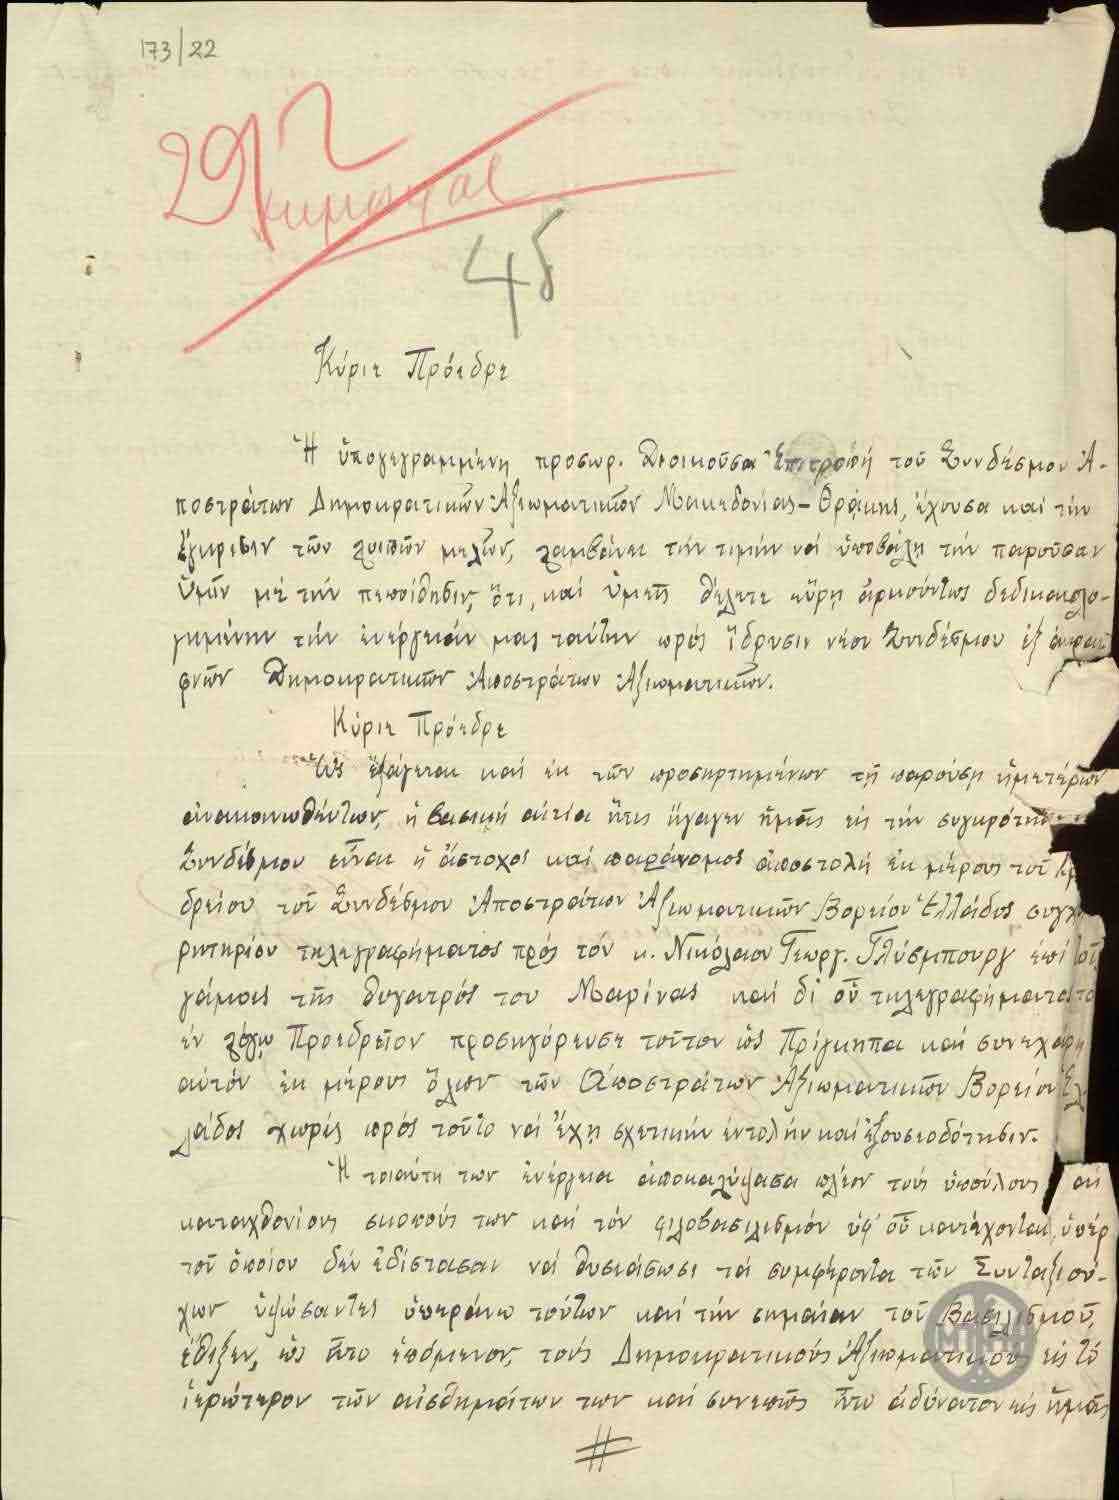 173/22
292
45
Κύριε Πρόεδρε
Ἡ ὑπογεγραμμένη προσωρ. Διοικοῦσα Ἐπιτροπή τοῦ Συνδέσμου Ἀ-
ποστράτων Δημοκρατικῶν Ἀξιωματικῶν Μακεδονίας - Θράκης, ἔχουσα καί τήν
ἔγκρισιν τῶν λοιπῶν μελῶν, λαμβάνει τήν τιμήν νά ὑποβάλῃ τήν παροῦσαν
ὑμῖν μέ τήν πεποίθησιν, ὅτι, καί ὑμεῖς θέλετε εὕρῃ ἀρκούντως δεδικαιολο-
γημένην τήν ἐνέργειάν μας ταύτην πρός ἵδρυσιν νέου Συνδέσμου ἐξ ἀκραι
φνῶν Δημοκρατικῶν Ἀποστράτων Ἀξιωματικῶν.
Κύριε Πρόεδρε
Ὡς ἐξάγεται καί ἐκ τῶν προσηρτημένων τῇ παρούσῃ ἡμετέρων
ἀνακοινωθέντων, ἡ βασική αἰτία ἥτις ἤγαγεν ἡμᾶς εἰς τήν συγκρότησιν
Συνδέσμου εἶναι ἡ ἄστοχος καί παράνομος ἀποστολή ἐκ μέρους τοῦ
δρείου τοῦ Συνδέσμου Ἀποστράτων Ἀξιωματικῶν Βορείου Ἑλλάδος συγχα
ρητηρίου τηλεγραφήματος πρός τόν κ. Νικόλαον Γεωργ. Γλύξμπουργ ἐπί τοῖς
γάμοις τῆς θυγατρός του Μαρίνας καί δι' οὗ τηλεγραφήματος τό
ἐν λόγῳ Προεδρεῖον προσηγόρευσε τοῦτον ὡς Πρίγκηπα καί συνεχάρη
αὐτόν ἐκ μέρους ὅλων τῶν Ἀποστράτων Ἀξιωματικῶν Βορείου Ἑλ-
λάδος χωρίς πρός τοῦτο νά ἔχῃ σχετικήν ἐντολήν καί ἐξουσιοδότησιν.
Ἡ τοιαύτη των ἐνέργεια ἀποκαλύψασα πλέον τούς ὑπούλους καί
καταχθονίους σκοπούς των καί τόν φιλοβασιλισμόν ὑφ' οὗ κατέχονται, ὑπέρ
τοῦ ὁποίου δέν ἐδίστασαν νά θυσιάσωσι τά συμφέροντα τῶν Συνταξιού-
χων ὑψώσαντες ὑπεράνω τούτων καί τήν σημαίαν τοῦ Βασιλισμοῦ,
ἔθιξεν, ὡς ἦτο ἑπόμενον, τούς Δημοκρατικούς Ἀξιωματικούς εἰς τό
ἱερώτερον τῶν αἰσθημάτων των καί συνεπῶς ἦτο ἀδύνατον εἰς ἡμᾶς